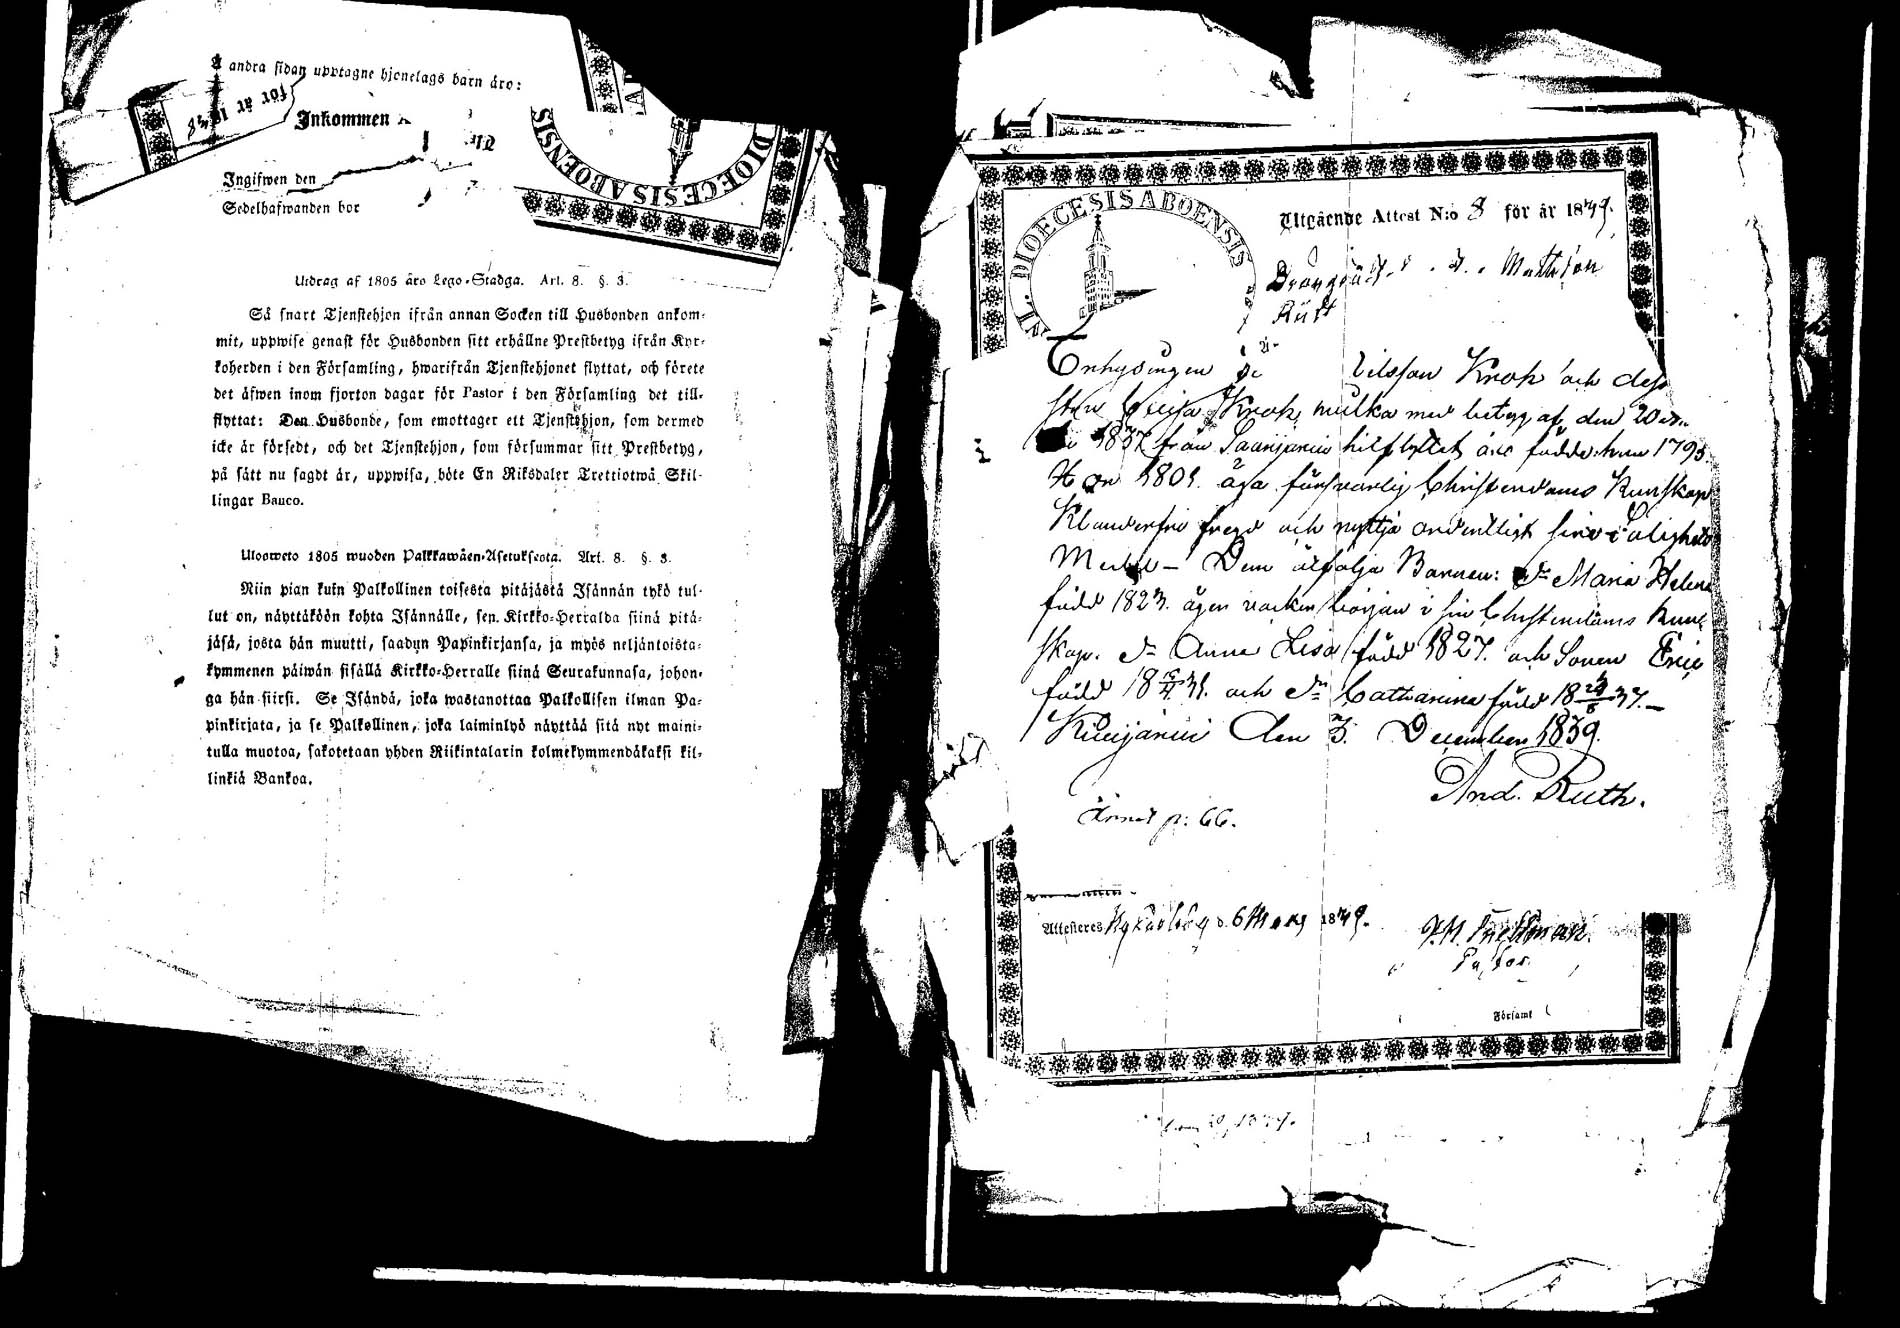 å andra sidan upptagne hjonelags barn äro:
för år 18
Inkommen
Ingifwen den
Sedelhafwanden bor
DIOECESIS ABOENSIS
Utdrag af 1805 års Lego-Stadga. Art. 8. §. 3.
Så snart Tjenstehjon ifrån annan Socken till Husbonden ankom-
mit, uppwise genast för Husbonden sitt erhållne Prestbetyg ifrån Kyr-
koherden i den Församling, hwarifrån Tjenstehjonet flyttat, och förete
det äfwen inom fjorton dagar för Pastor i den Församling det till-
flyttat: Den Husbonde, som emottager ett Tjenstehjon, som dermed
icke är försedt, och det Tjenstehjon, som försummar sitt Prestbetyg,
på sätt nu sagdt är, uppwisa, böte En Riksdaler Trettiotwå Skil-
lingar Banco.
Ulosweto 1805 wuoden Palkkawäen-Asetuksesta. Art. 8. §. 3.
Niin pian kuin Palkollinen toisesta pitäjästä Isännän tykö tul-
lut on, näyttäköön kohta Isännälle, sen Kirkko-Herralda siinä pitä-
jäsä, josta hän muutti, saadun Papinkirjansa, ja myös neljäntoista-
kymmenen päiwän sisällä Kirkko-Herralle siinä Seurakunnasa, johon-
ga hän siirsi. Se Isändä, joka wastanottaa Palkollisen ilman Pa-
pinkirjata, ja se Palkollinen, joka laiminlyö näyttää sitä nyt maini-
tulla muotoa, sakotetaan yhden Riikintalarin kolmekymmendäkaksi kil-
linkiä Bankoa.
DIOECESIS ABOENSIS
Utgående Attest N:o 8 för år 1849.
Mattsson
Inhysingen Nilsson Krok och dess
Krok, hvilka med betyg af den 20
1837 från Saarijärvi hitflyttat äro födde han 1795.
Hon 1801. äga försvarlig Christendoms Kunskap
Klanderfri frejd och nyttja ordentligt sine Salighets
Medel – Dem åtfölja Barnen: Dr Maria Helena
född 1823. ägen vacker början i sin Christendoms Kun-
skap. Dr Anna Lisa född 1827. och Sonen Eric
född 18 31. och Dr Catharina född 18 37.–
Kivijärvi den 3. December 1839.
And. Ruth.
p: 66.
Attesteras d. 6 Mars 1849.
Pastor.
Församl